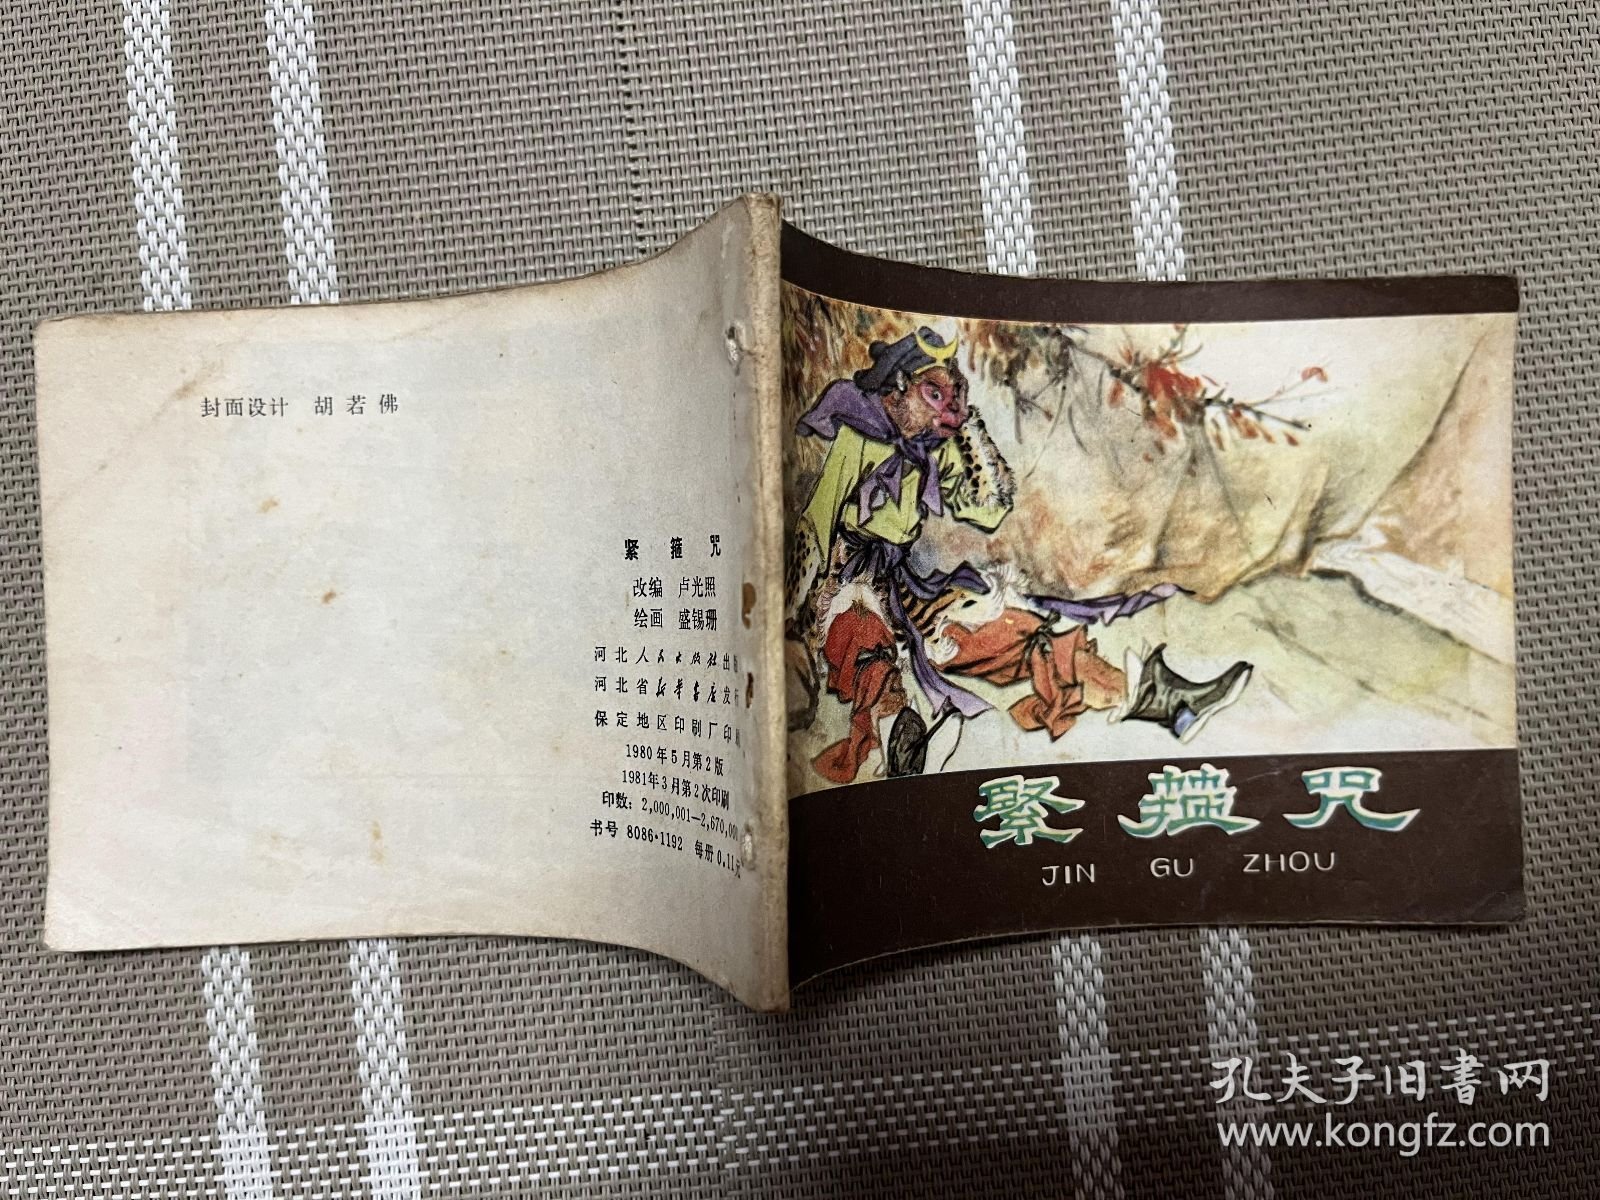 封面设计 胡若佛
紧箍咒
改编 卢光照
绘画 盛锡珊
河北人民出版社出版
河北省新华书店发行
保定地区印刷厂印刷
1980年5月第2版
1981年3月第2次印刷
印数：2,000,001—2,670,000
书号 8086·1192 每册0.11元
緊箍咒
JIN GU ZHOU
孔夫子旧書网
www.kongfz.com